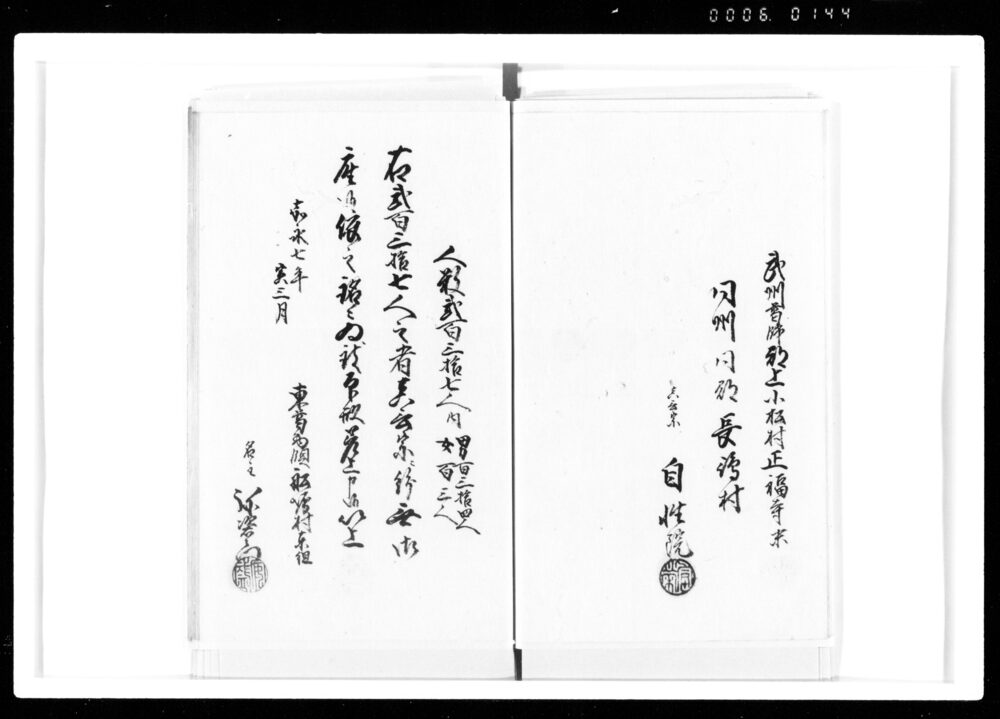 0006. 0144
武州葛飾郡上小松村正福寺末
同州同郡長嶋村
真言宗
自性院
人数弐百三拾七人内
男百三拾四人
女百三人
右弐百三拾七人之者真言宗ニ紛無御
座候依之銘々為致印形差上申候以上
嘉永七年
寅三月
東葛西領
村東組
名主